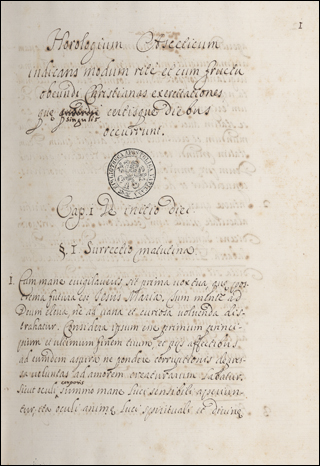 1
Horologium Asceticum
indicans modum rite et cum fructu
obeundi Christianas exercitationes
que singulis certisque diebus
occurrunt.
Cap. 1 De initio diei
§. 1 Surrectio matutina
1. Cum mane evigilaveris sit prima vox tua, que
trema futura est Jesus Maria. Tum mente ad
Deum eleva, ne ad vana et curiosa voluenda dis-
trahatur. Considera ipsum esse primum princi-
pium et ultimum finem tuum, et pijs affectibus
ad eundem aspira, ne pondere corruptionis
voluntas ad amorem creaturarum labatur.
Sicut oculi corporis summo mane luci sensibili aperiun-
tur, ita oculi anime luci spirituali et divine